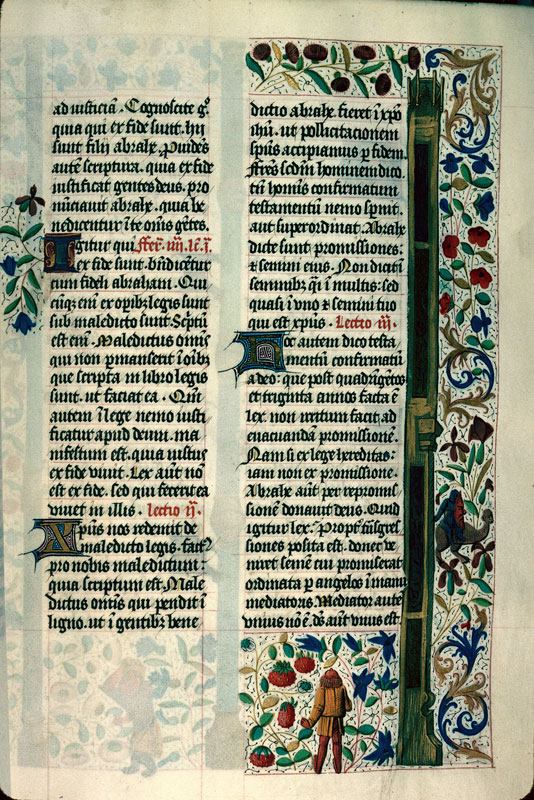 ad iusticiã. Cognoscite gͦ
quia qui ex fide sunt. hij
sunt filij abrahe. Prouidẽs
autẽ scriptura. quia ex fide
iustificat gentes deus. pro
nũciauit abrahe. quia be
nedicentur ĩ te om̃s gẽtes.
Igitur qui ffer̃. iiii. lc̃. i.
ex fide sunt. bñdicẽtur
cum fideli abraham. Qui
cũq; em̃ ex opib; legis sunt
sub maledicto sunt. Sc̃ptũ
est em̃. Maledictus om̃is
qui non ꝑmanserit ĩ oĩb;
que scripta in libro legis
sunt. ut faciat ea. Qm̃
autem ĩ lege nemo iusti
ficatur apud deum. ma
nifestum est. quia iustus
ex fide viuit. Lex aut̃ nõ
est ex fide. sed qui fecerit ea
viuet in illis. lectio ij.
Xp̃us nos redemit de
maledicto legis. factꝰ
pro nobis maledictum:
quia scriptum est. Male
dictus om̃is qui pendit ĩ
ligno. ut ĩ gentib; bene
dictio abrahe. fieret ĩ xp̃o
ih̃u. ut pollicitacionem
sp̃us accipiamus ꝑ fidem.
ffr̃es sc̃dm hominem dico.
tñ hoĩs confirmatum
testamentũ nemo sp̃nit.
aut superordinat. Abrahe
dicte sunt promissiones:
⁊ semini eius. Non dicit:
seminib; q̃i ĩ multis: sed
quasi ĩ vno ⁊ semini tuo
qui est xp̃us. Lectio iij.
Hoc autem dico testa
mentũ confirmatũ
a deo: que post quadrĩgẽtos
et triginta annos facta ẽ
lex. non irritum facit ad
euacuandã promissionẽ.
Nam si ex lege hereditas:
iam non ex promissione.
Abrahe aut̃ per repromis
sionẽ donauit deus. Quid
igitur lex? Propt̃ trãsgres
siones posita est. donec ve
niret semẽ cui promiserat
ordinata ꝑ angelos ĩ manu
mediatoris. Mediator autẽ
vnius nõ ẽ. dẽs aut̃ vnus est.